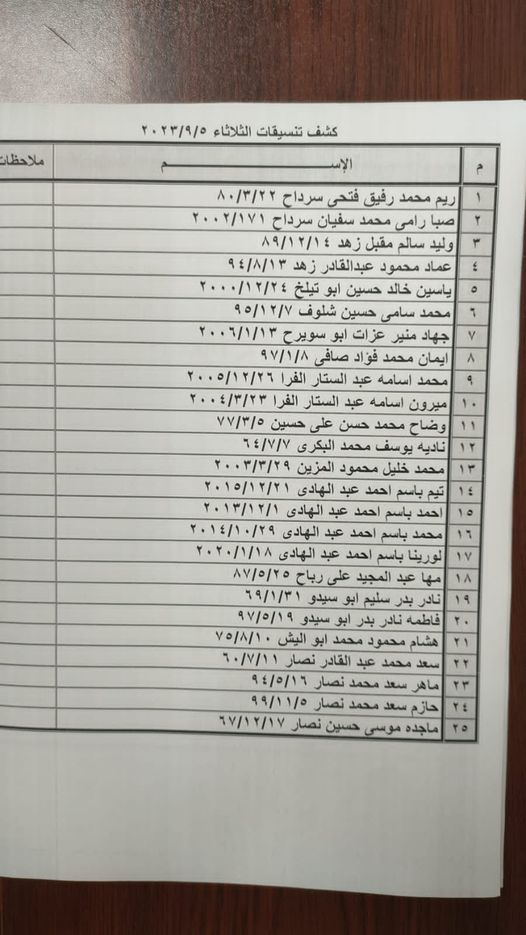 كشف تنسيقات الثلاثاء ٢٠٢٣/٩/٥
م الإســـــــم ملاحظات
١ ريم محمد رفيق فتحى سرداح ٨٠/٣/٢٢
٢ صبا رامى محمد سفيان سرداح ٢٠٠٢/١٧١
٣ وليد سالم مقبل زهد ٨٩/١٢/١٤
٤ عماد محمود عبدالقادر زهد ٩٤/٨/١٣
٥ ياسين خالد حسين ابو تيلخ ٢٠٠٠/١٢/٢٤
٦ محمد سامى حسين شلوف ٩٥/١٢/٧
٧ جهاد منير عزات ابو سويرح ٢٠٠٦/١/١٣
٨ ايمان محمد فؤاد صافى ٩٧/١/٨
٩ محمد اسامه عبد الستار الفرا ٢٠٠٥/١٢/٢٦
١٠ ميرون اسامه عبد الستار الفرا ٢٠٠٤/٣/٢٣
١١ وضاح محمد حسن على حسين ٧٧/٣/٥
١٢ ناديه يوسف محمد البكرى ٦٤/٧/٧
١٣ محمد خليل محمود المزين ٢٠٠٣/٣/٢٩
١٤ تيم باسم احمد عبد الهادى ٢٠١٥/١٢/٢١
١٥ احمد باسم احمد عبد الهادى ٢٠١٣/١٢/١
١٦ محمد باسم احمد عبد الهادى ٢٠١٤/١٠/٢٩
١٧ لورينا باسم احمد عبد الهادى ٢٠٢٠/١/١٨
١٨ مها عبد المجيد على رباح ٨٧/٥/٢٥
١٩ نادر بدر سليم ابو سيدو ٦٩/١/٣١
٢٠ فاطمه نادر بدر ابو سيدو ٩٧/٥/١٩
٢١ هشام محمود محمد ابو اليش ٧٥/٨/١٠
٢٢ سعد محمد عبد القادر نصار ٦٠/٧/١١
٢٣ ماهر سعد محمد نصار ٩٤/٥/١٦
٢٤ حازم سعد محمد نصار ٩٩/١١/٥
٢٥ ماجده موسى حسين نصار ٦٧/١٢/١٧